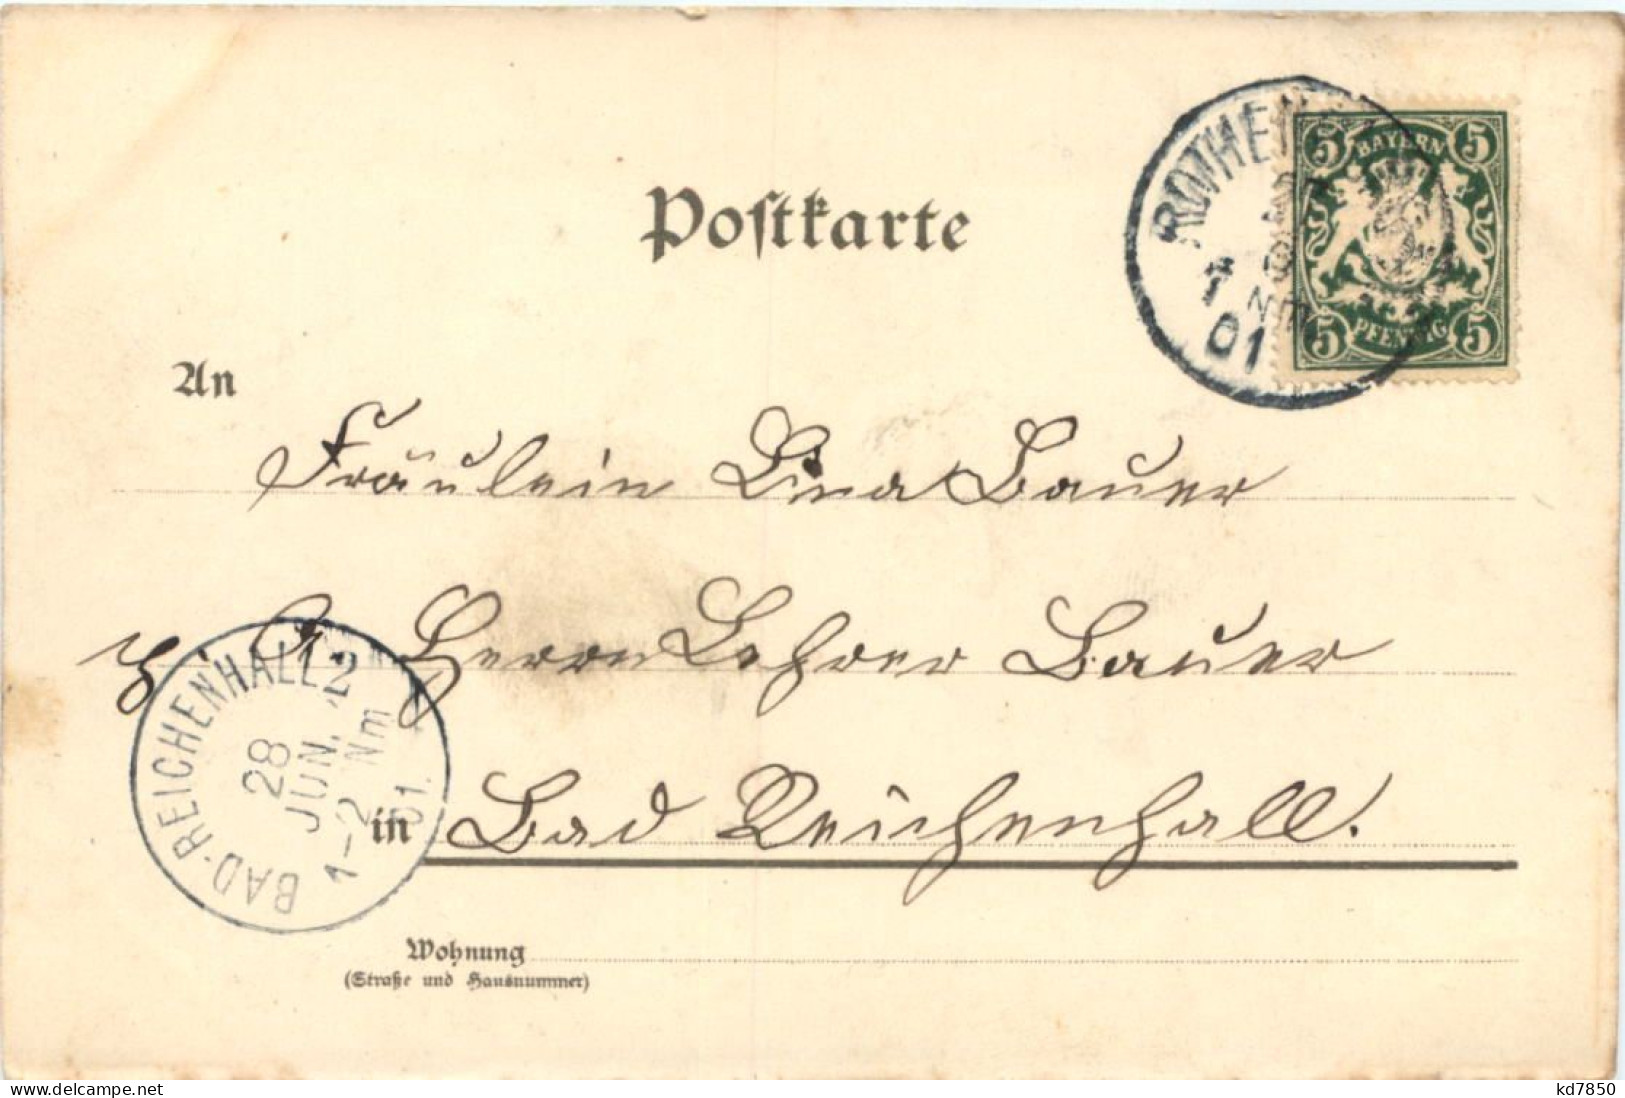 Postkarte
5 BAYERN 5
5 PFENNIG 5
7 NM
01
An
Fräulein Lina Bauer
Herrn Lehrer Bauer
in Bad Reichenhall.
BAD-REICHENHALL 2
28
JUN.
1-2 Nm
01.
Wohnung
(Straße und Hausnummer)
www.delcampe.net
kd7850